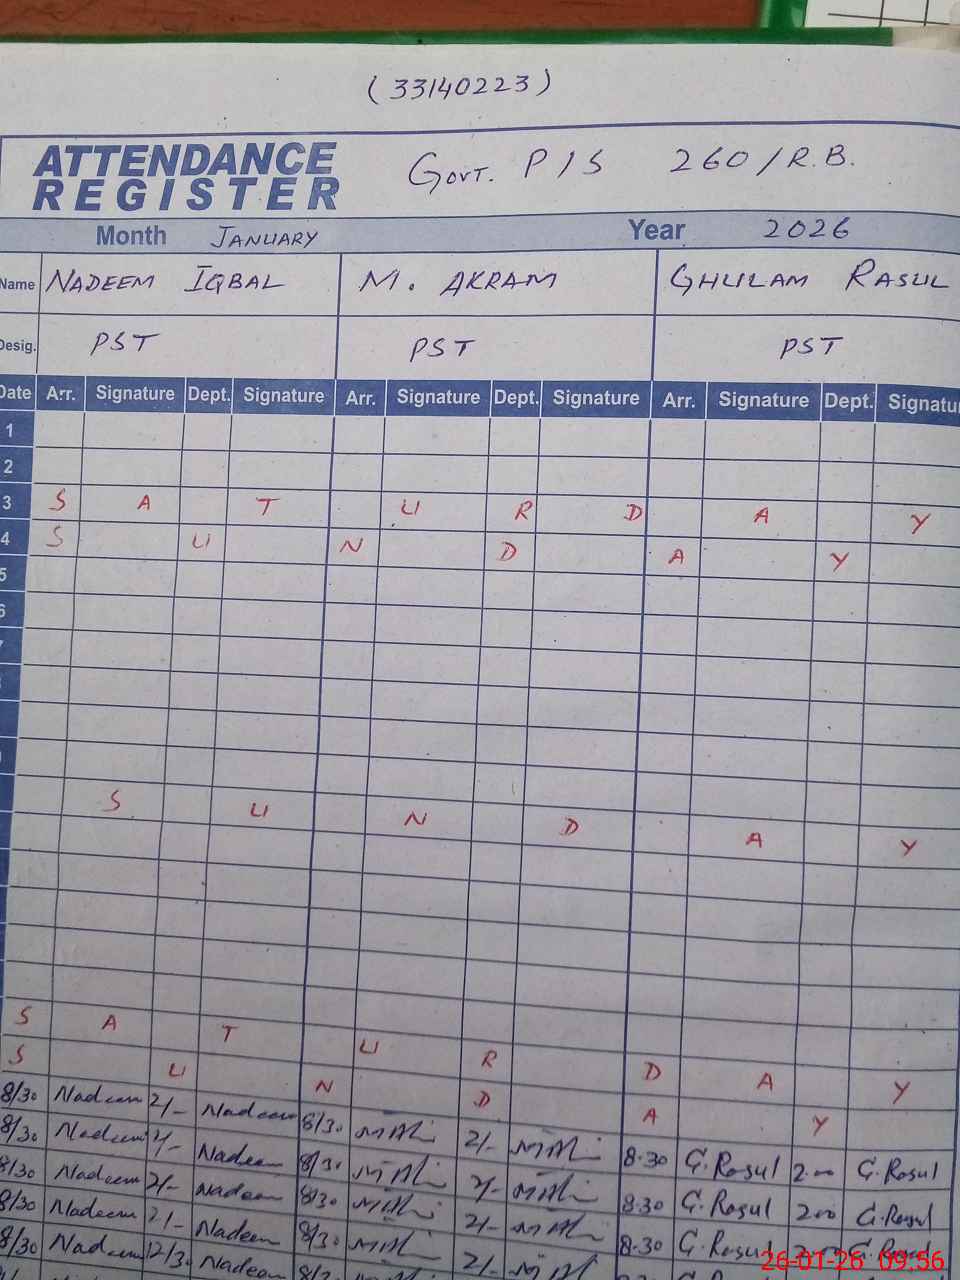 (33140223)
ATTENDANCE REGISTER
Govt. P/S 260/R.B.
Month JANUARY Year 2026
Name NADEEM IQBAL M. AKRAM GHULAM RASUL
Desig. PST PST PST
Date Arr. Signature Dept. Signature Arr. Signature Dept. Signature Arr. Signature Dept. Signatu
1
2
3 S A T U R D A Y
4 S U N D A Y
5
6
S U N D A Y
S A T U R D A Y
S U N D A Y
8/30 Nadeem 2/- Nadeem 8/30 2/- 8.30 G.Rasul 2.00 G.Rasul
8/30 Nadeem 2/- Nadeem 8/30 2/- 8.30 G.Rasul 2.00 G.Rasul
8/30 Nadeem 2/- Nadeem 8/30 2/- 8.30 G.Rasul
8/30 Nadeem 2/- Nadeem 8/30 2/-
8/30 Nadeem 12/30 Nadeem
26-01-26 09:56